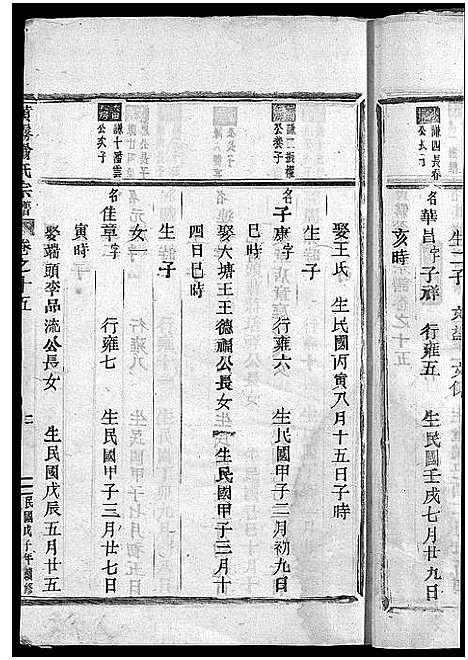 生二子
謙四長春
公次子
名華昌字子祥 行雍五 生民國壬戌七月廿九日
亥時
娶王氏 生民國丙寅八月十五日子時
生子
公養子
名子康字 行雍六 生民國甲子二月初九日
巳時
娶大塘王王德福公長女 生民國甲子三月十
四日巳時
生子
謙十潘雲
公次子
名佳章字 行雍七 生民國甲子三月廿七日
寅時
娶端頭李品流公長女 生民國戊辰五月廿五
氏宗譜 卷之十五
民國戊子年續修